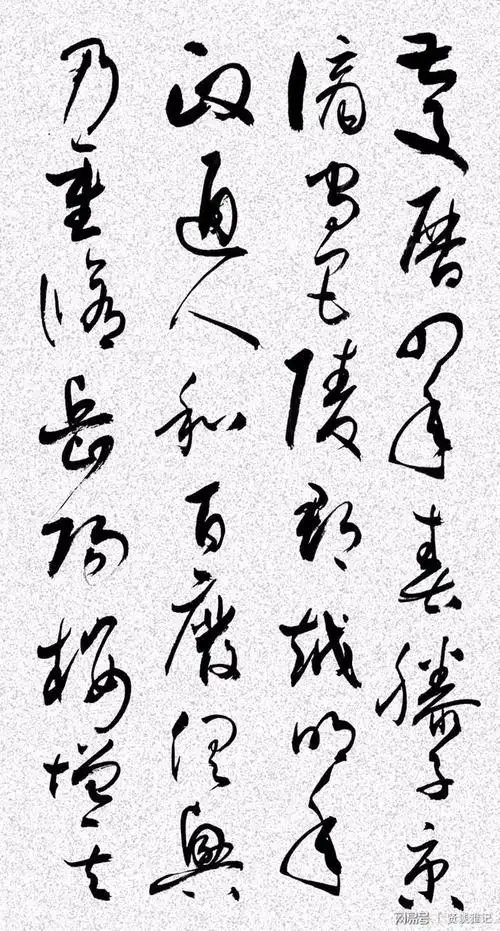 慶曆四年春滕子京
謫守巴陵郡越明年
政通人和百廢俱興
乃重修岳陽樓增其
网易号 | 雅记